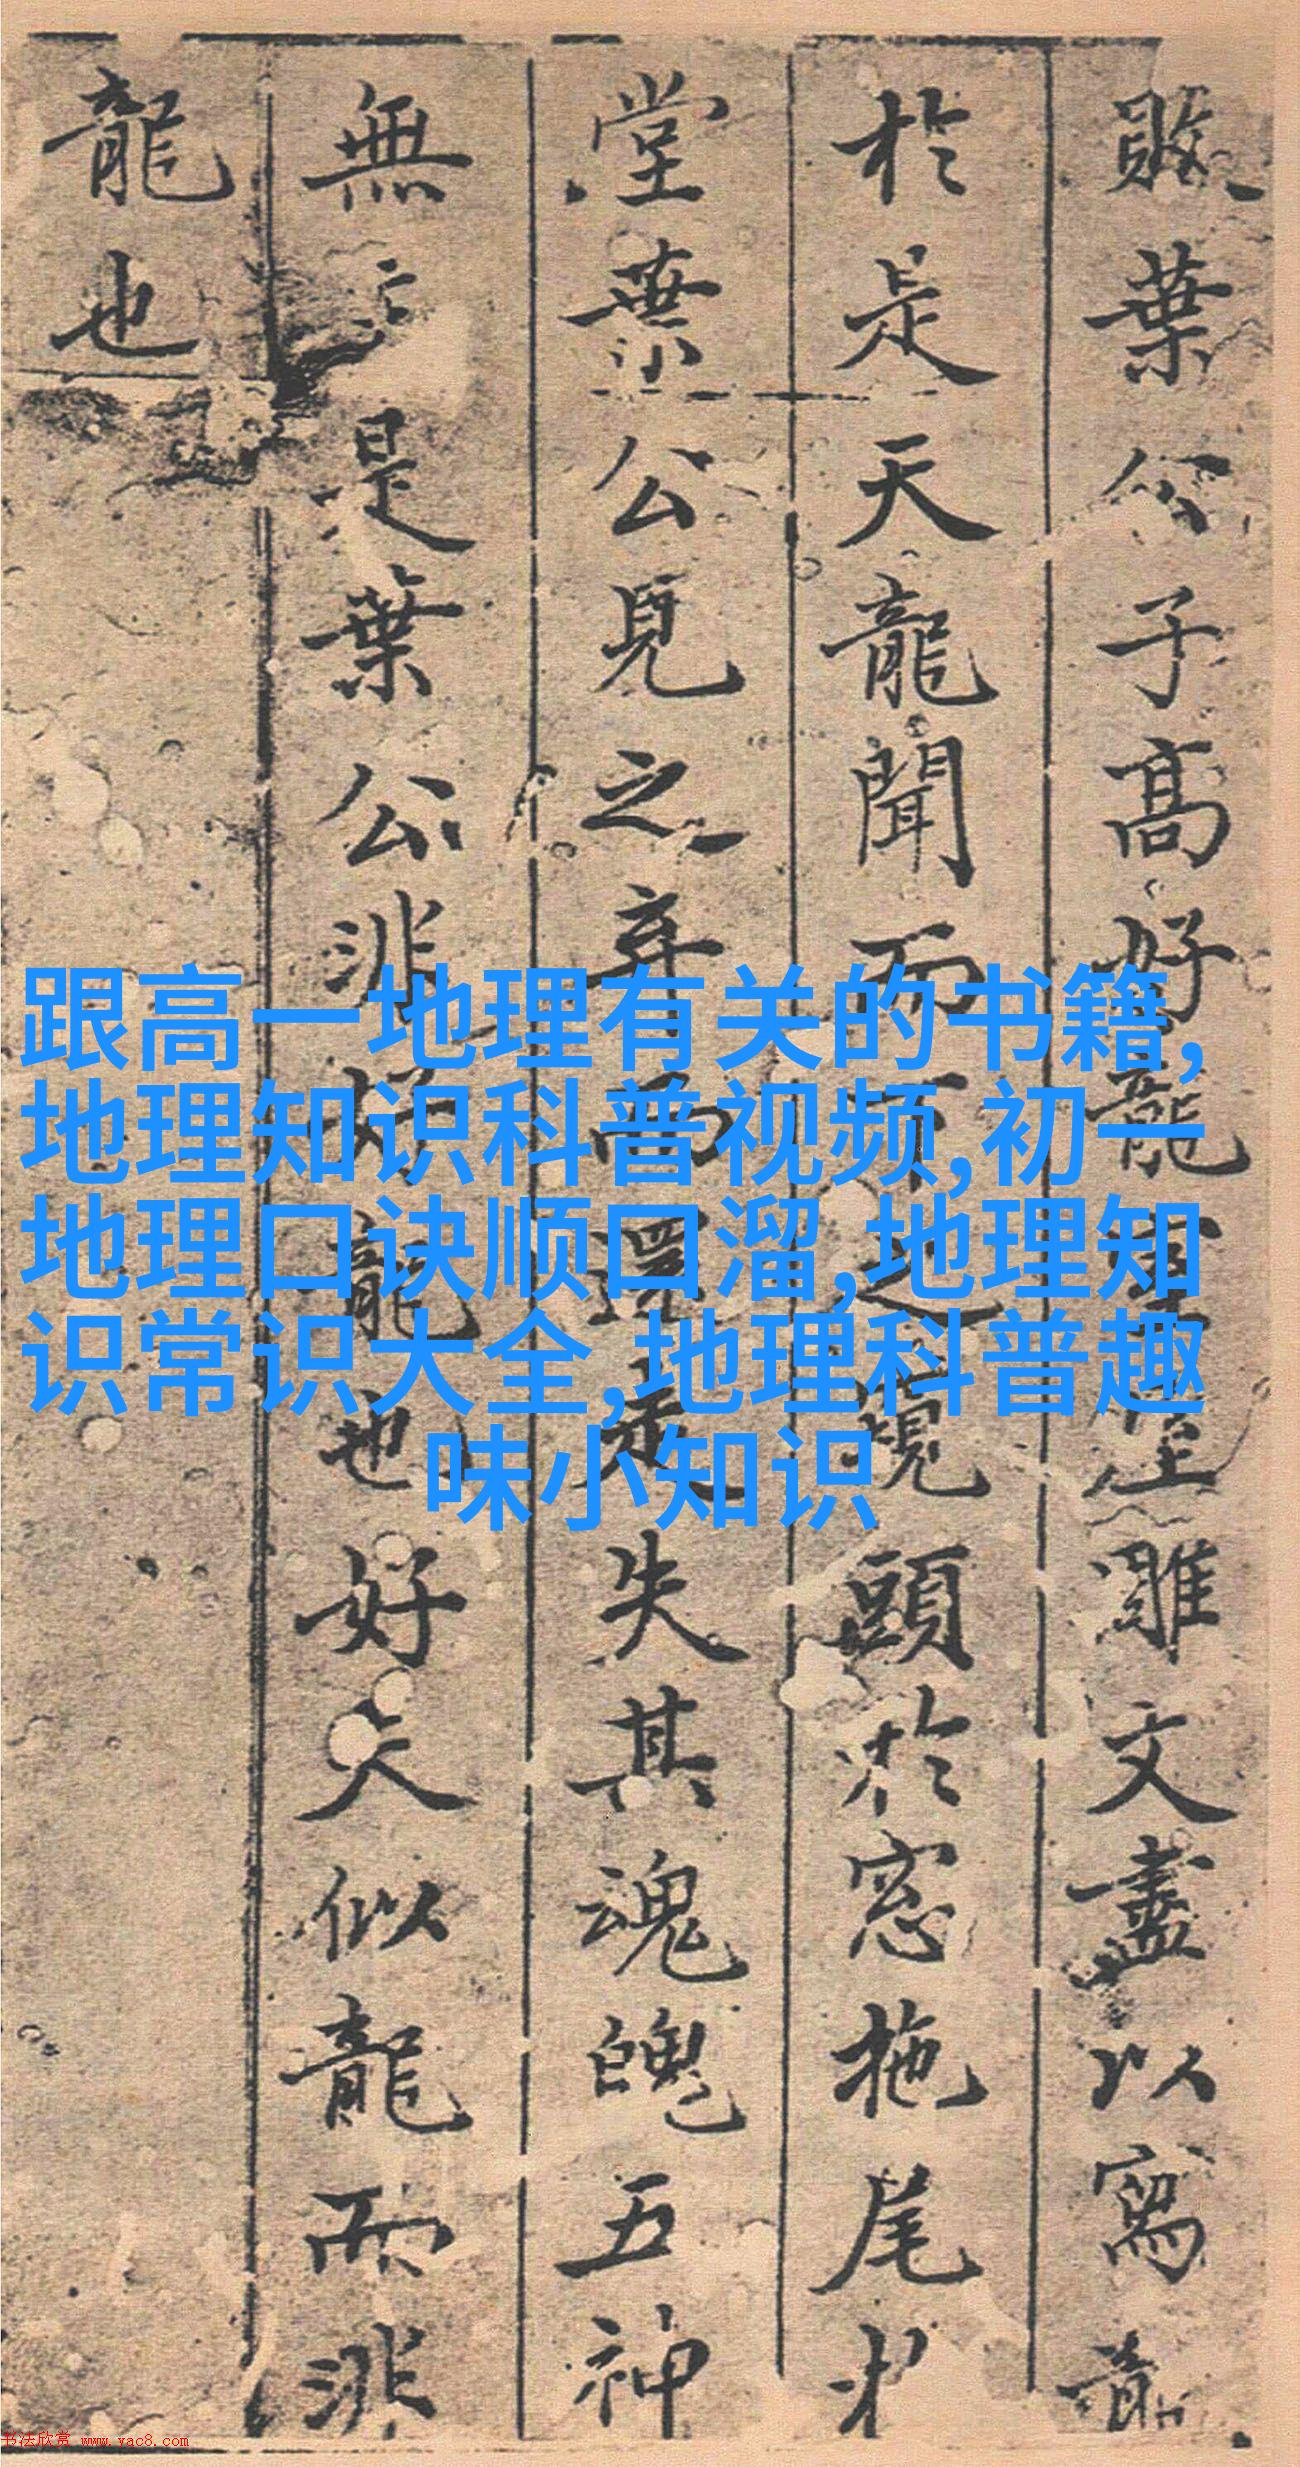 葉公子高好龍屋雕文盡以寫龍
於是天龍聞而下之窺頭於窓拖尾於
堂葉公見之弃而還走失其魂魄五神
無主是葉公非好龍也好夫似龍而非
龍也
跟高一地理有关的书籍,
地理知识科普视频,初一
地理口诀顺口溜,地理知
识常识大全,地理科普趣
味小知识
书法欣赏 www.yac8.com